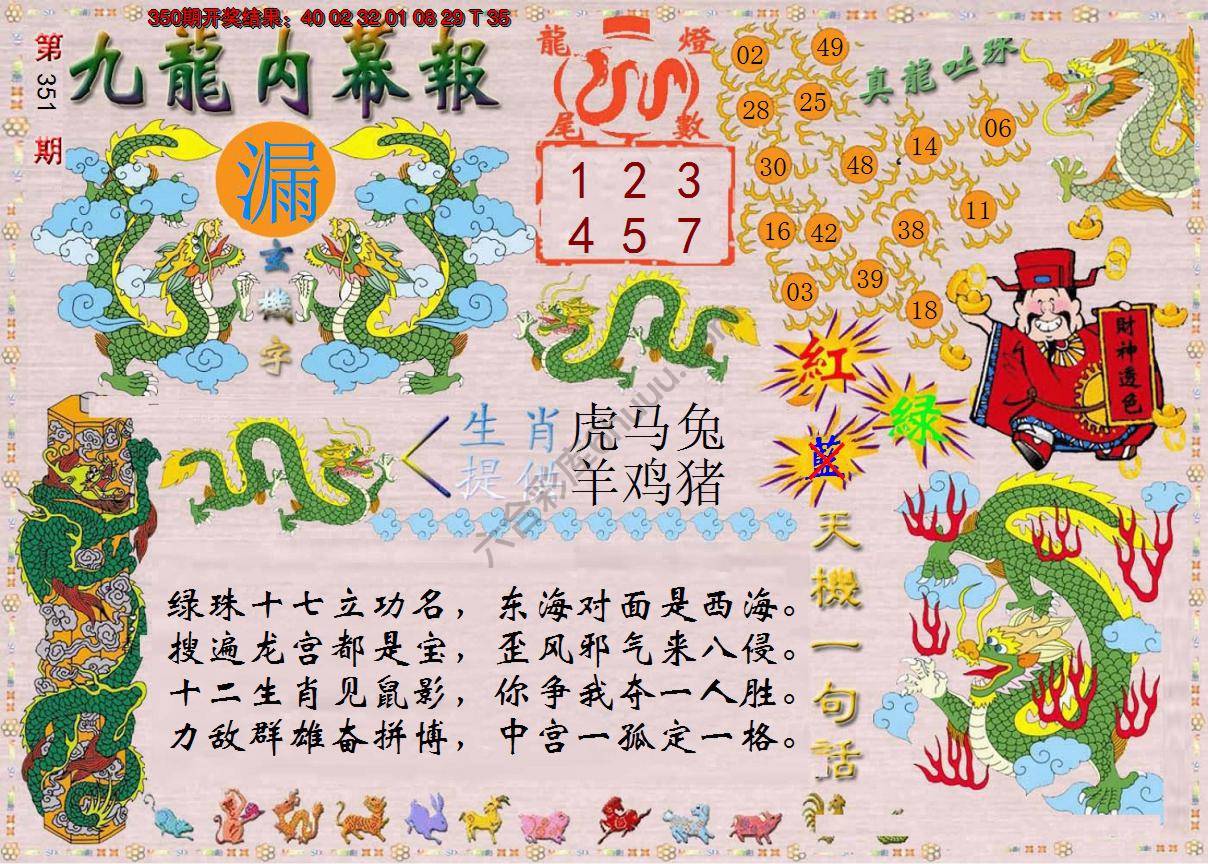 350期开奖结果：40 02 32 01 08 29 T 35
第351期
九龍内幕報
漏
玄機字
龍燈
尾數
1 2 3
4 5 7
真龍吐珠
02
49
28
25
14
06
30
48
11
16
42
38
39
03
18
財神透色
紅
绿
藍
生肖
提供
虎马兔
羊鸡猪
天機一句話
绿珠十七立功名，东海对面是西海。
搜遍龙宫都是宝，歪风邪气来八侵。
十二生肖见鼠影，你争我夺一人胜。
力敌群雄奋拼博，中宫一孤定一格。